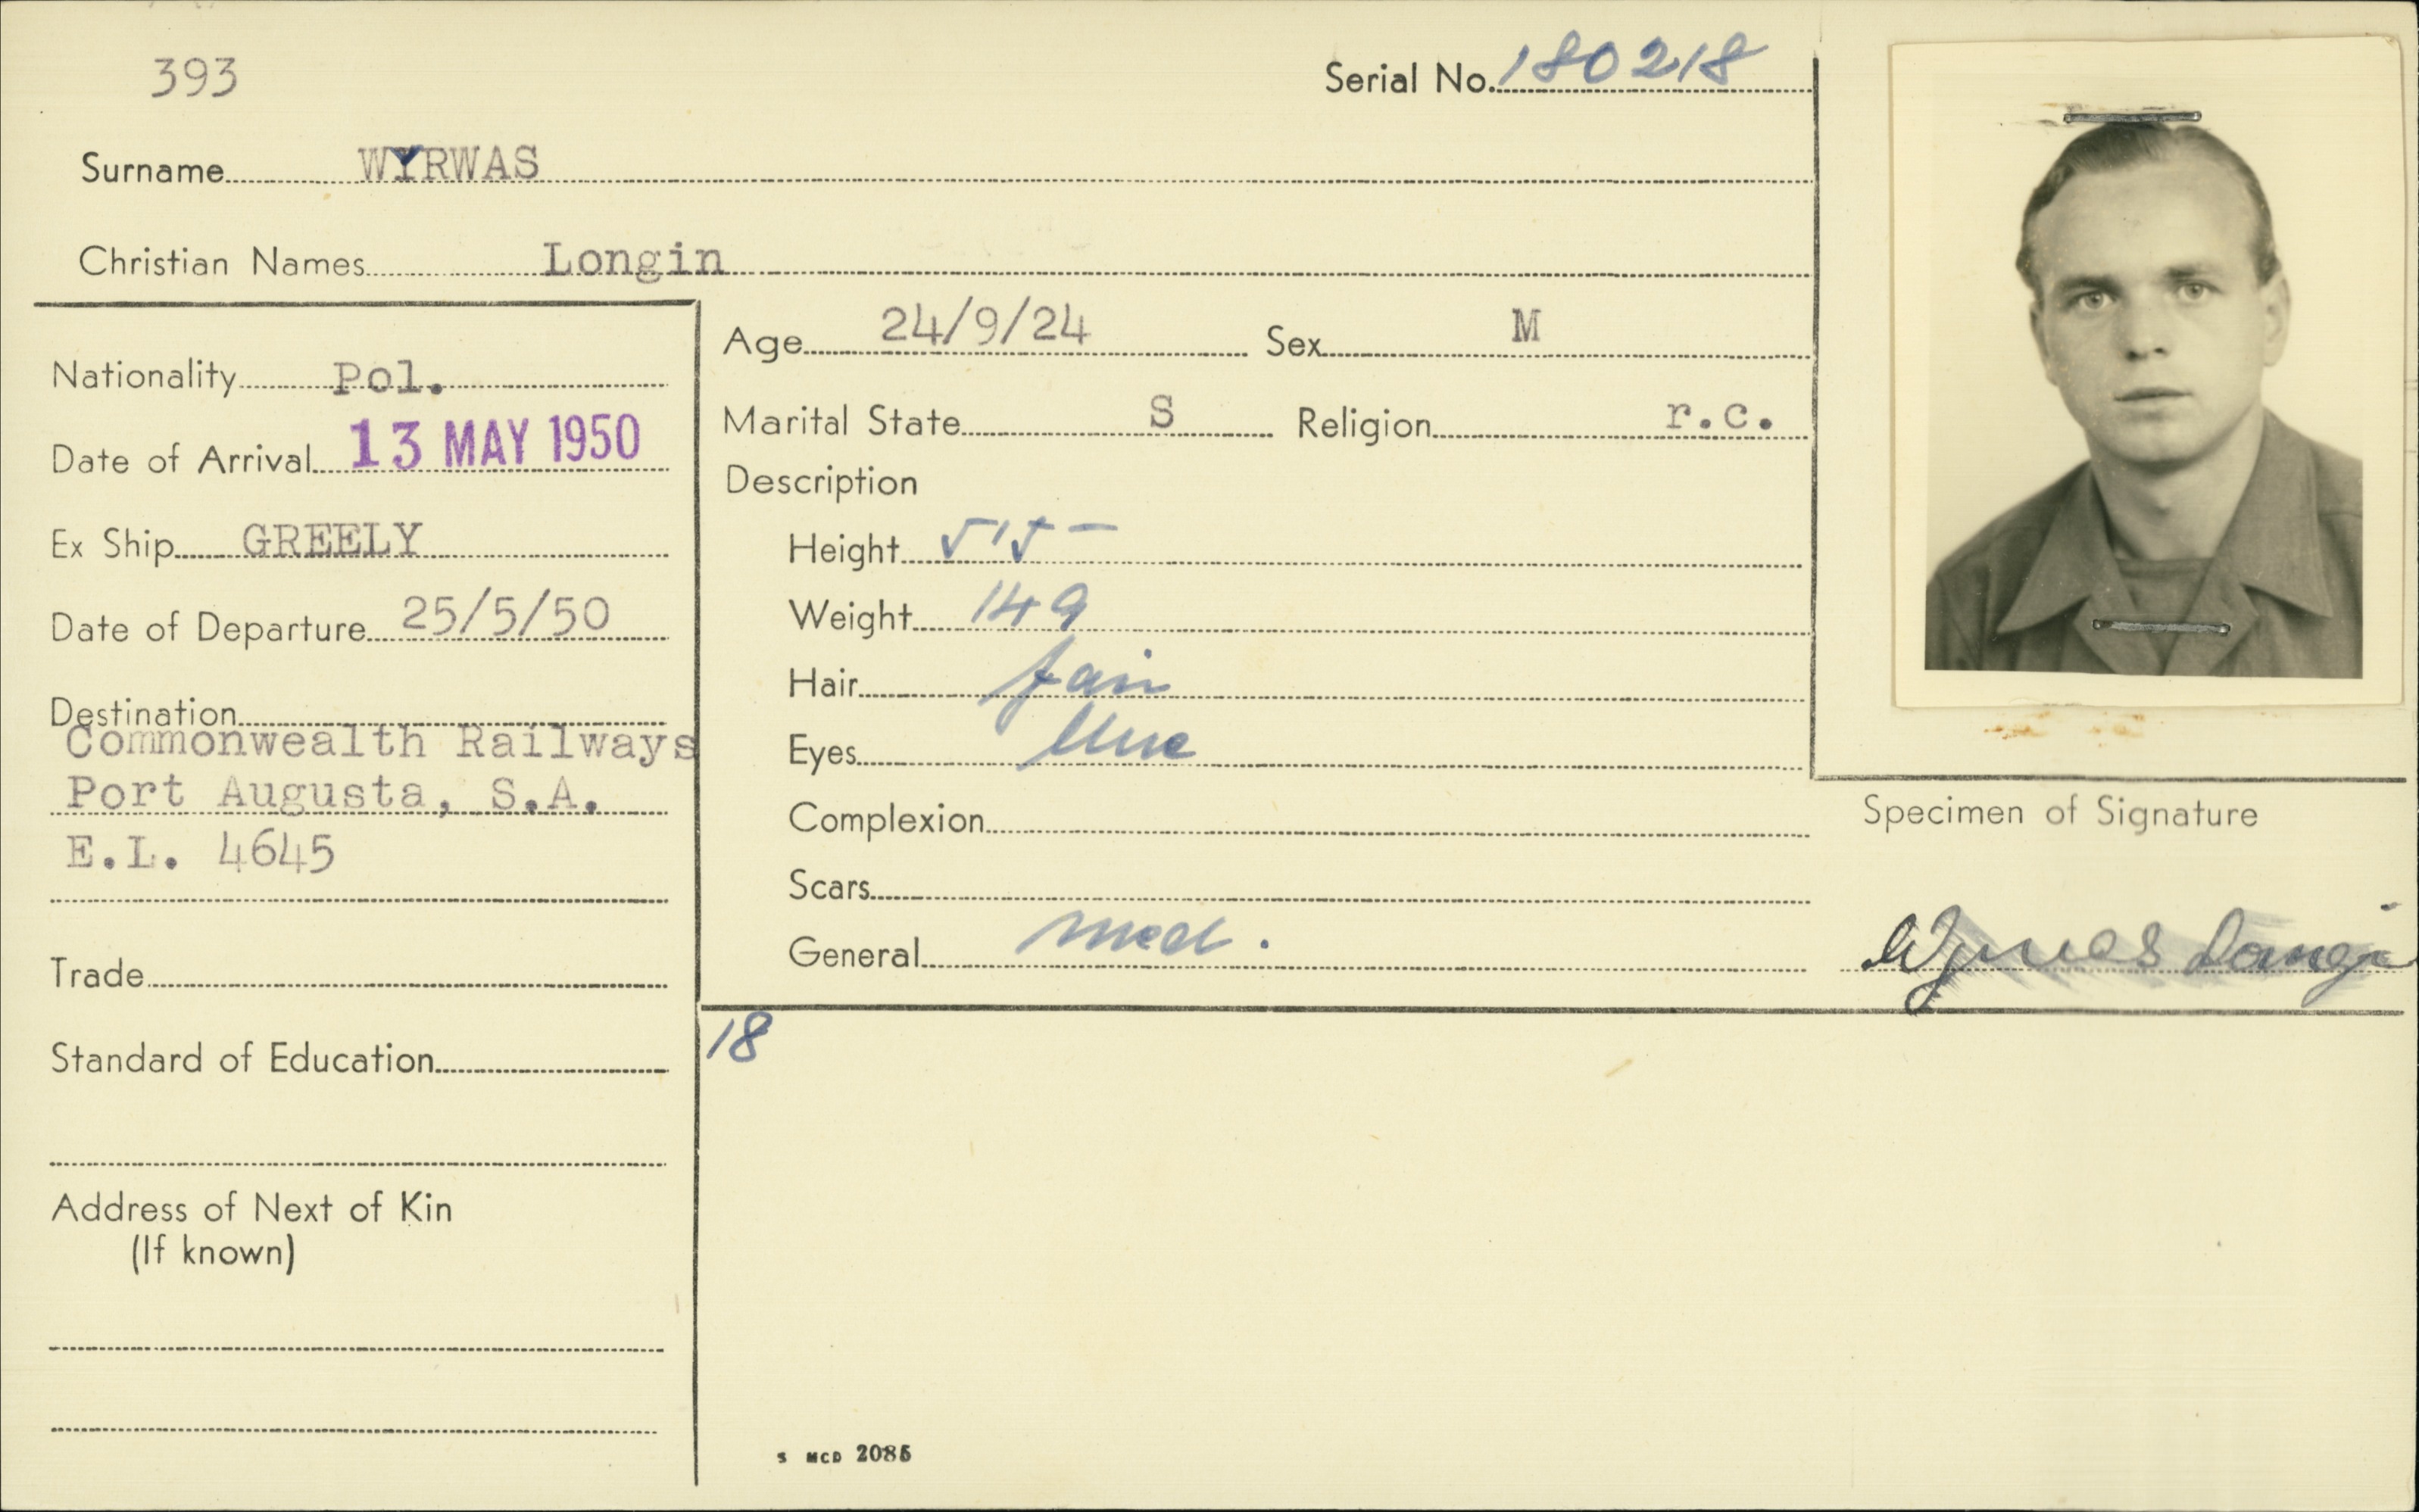 393
Serial No. 180218
Surname WYRWAS
Christian Names Longin
Nationality Pol.
Date of Arrival 13 MAY 1950
Ex Ship GREELY
Date of Departure 25/5/50
Destination
Commonwealth Railways
Port Augusta, S.A.
E.L. 4645
Trade
Standard of Education
Address of Next of Kin
(If known)
Age 24/9/24 Sex M
Marital State S Religion r.c.
Description
Height 5'5"
Weight 149
Hair fair
Eyes blue
Complexion
Scars
General med.
18
S MCD 2085
Specimen of Signature
Wyrwas Longi